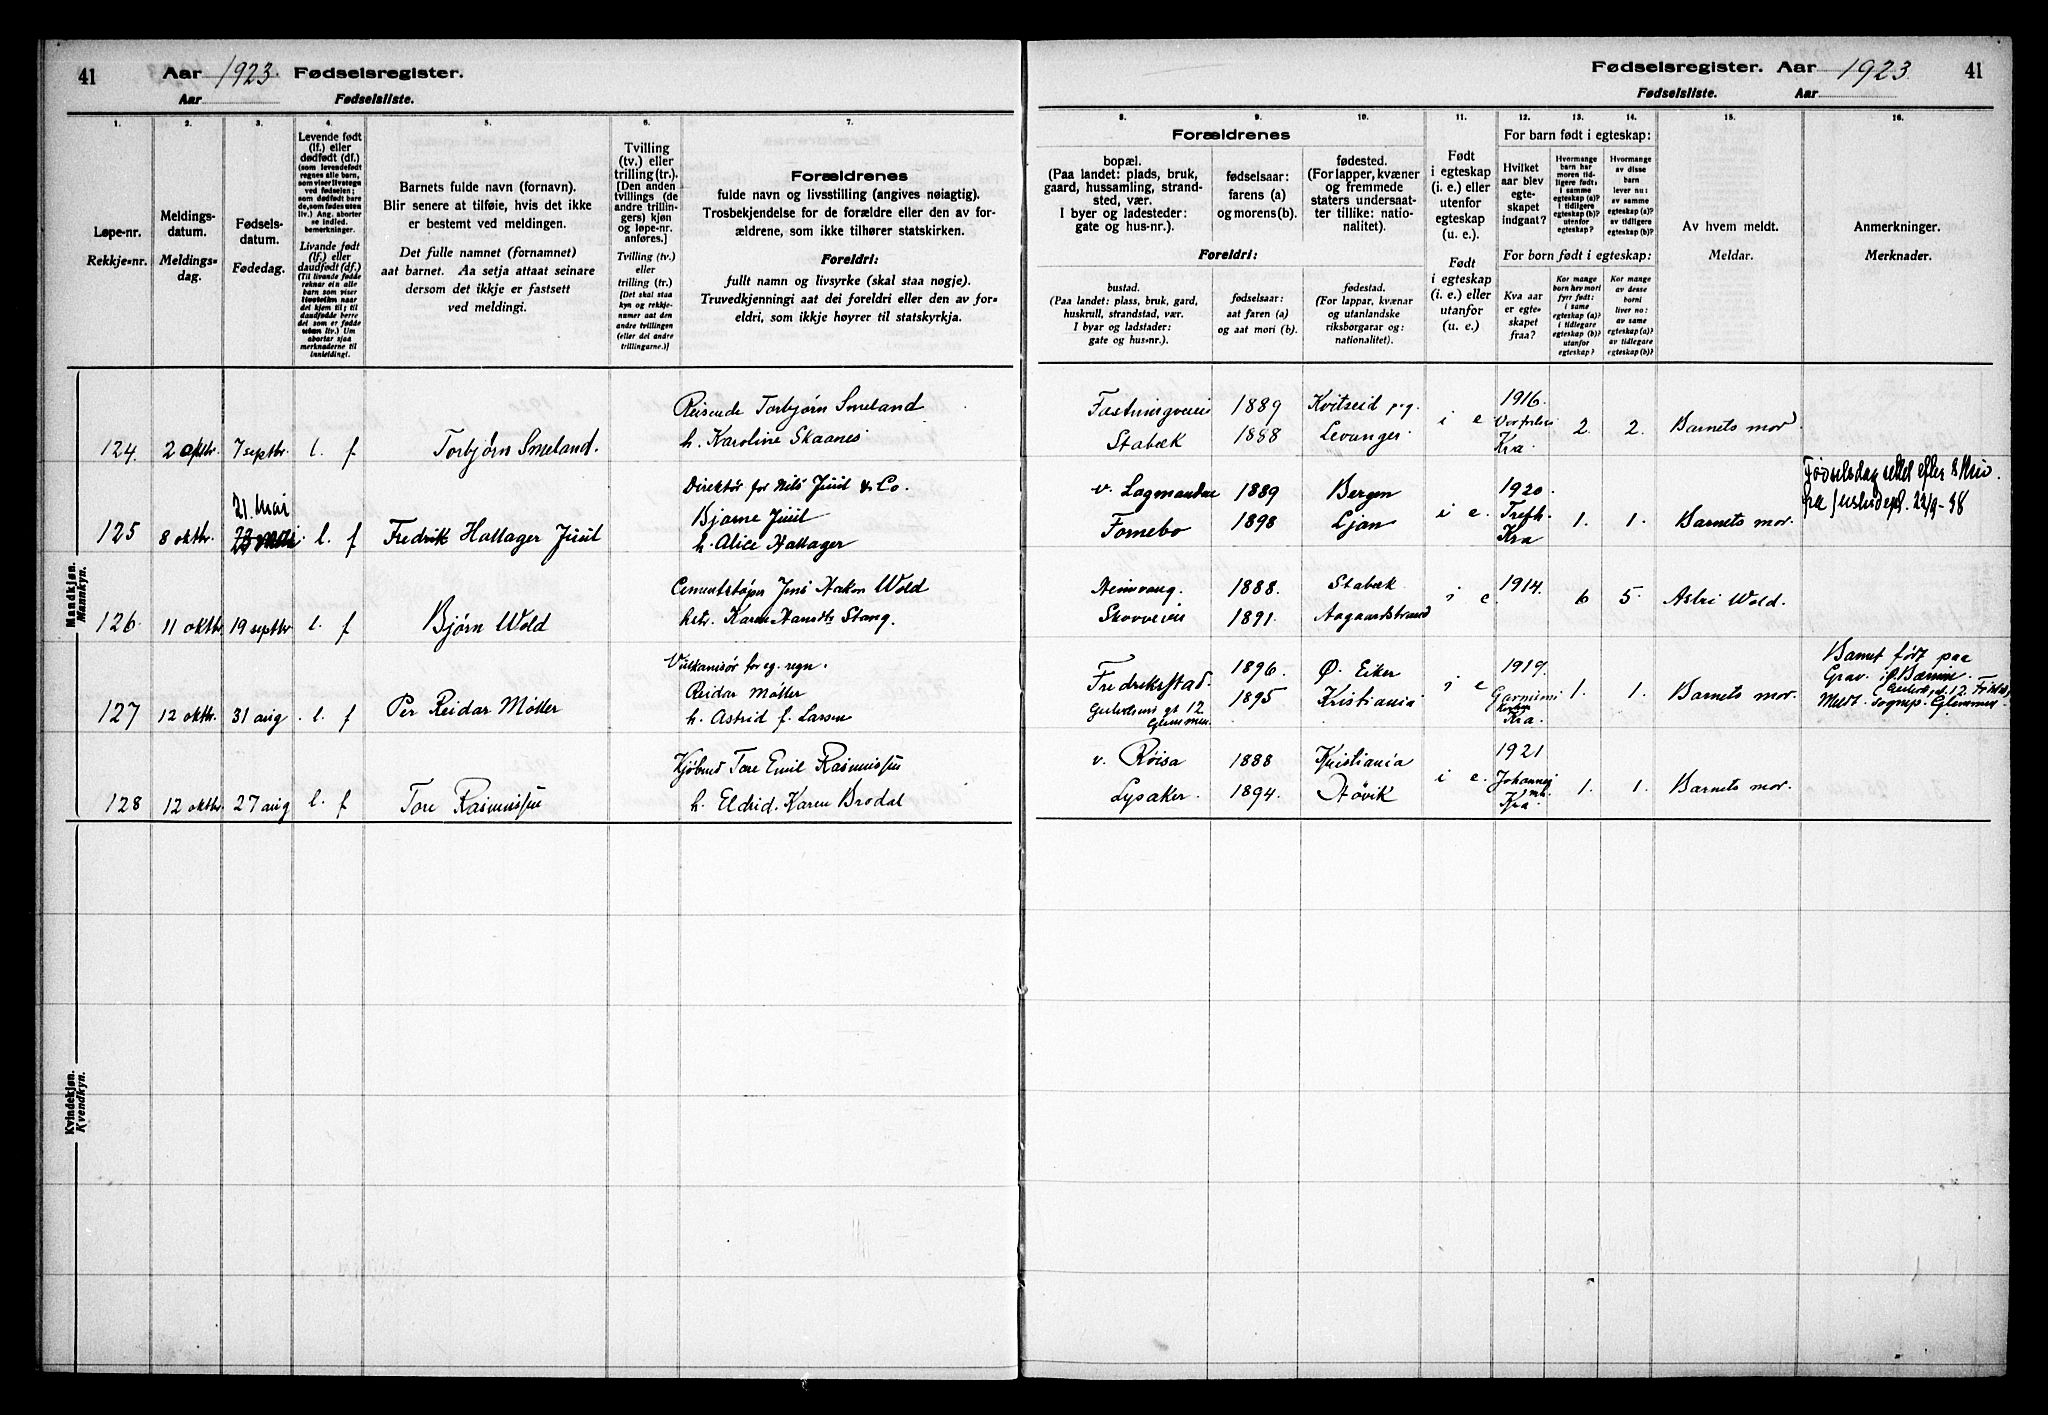 41 Aar 1923. Fødselsregister.
Aar Fødselsliste.
1.
Løpe-nr.
Rekkje-nr.
2.
Meldings-
datum.
Meldings-
dag.
3.
Fødsels-
datum.
Fødedag.
4.
Levende født
(lf.) eller
dødfødt (df.)
(som levendefødt
regnes alle barn,
som viser livstegn
ved fødselen;
som dødfødt bare
de, som fødes uten
liv.) Ang. aborter
se indled.
bemerkninger.
Livande født
(lf.) eller
daudfødt (df.)
(Til livande fødde
reknar ein alle
born som viser
livsteikn naar
det kjem til; til
daudfødde berre
dei som er fødde
utan liv.) Um
abortar sjaa
merknaderne til
innleiding!
5.
Barnets fulde navn (fornavn).
Blir senere at tilføie, hvis det ikke
er bestemt ved meldingen.
Det fulle namnet (fornamnet)
aat barnet. Aa setja attaat seinare
dersom det ikkje er fastsett
ved meldingi.
6.
Tvilling
(tv.) eller
trilling (tr.).
[Den anden
tvillings (de
andre trillin-
gers) kjøn
og løpe-nr.
anføres.]
Tvilling (tv.)
eller
trilling (tr.)
[Det skal staa
kyn og rekkje-
numer aat den
andre tvillingen
(eller dei andre
trillingarne.)]
7.
Forældrenes
fulde navn og livsstilling (angives nøiagtig).
Trosbekjendelse for de forældre eller den av for-
ældrene, som ikke tilhører statskirken.
Foreldri:
fullt namn og livsyrke (skal staa nøgje).
Truvedkjenningi aat dei foreldri eller den av for-
eldri, som ikkje høyrer til statskyrkja.
Mandkjøn.
Mannkyn.
124. 2 oktbr. 7 septbr. l. f Torbjørn Smeland.
Reisende Torbjørn Smeland
h. Karoline Skaanes
125 8 oktbr. 21. mai 23 mai l. f Fredrik Hallager Juul
Direktør for Nils Juul & Co.
Bjarne Juul
h. Alice Hallager
126. 11 oktbr 19 septbr l. f Bjørn Wold
Cementstøper Jens Hakon Wold
hstr. Karen Stang.
127 12 oktbr. 31 aug. l. f Per Reidar Møller
Vulkanisør for eg. regn.
Reidar Møller
h. Astrid f. Larsen
128 12 oktbr. 27 aug l. f Tore Rasmussen
Kjøbmd Tore Emil Rasmussen
h. Eldrid Karen Brodal
Kvindekjøn.
Kvendkyn.
Fødselsregister. Aar 1923 41
Fødselsliste. Aar
Forældrenes
8.
bopæl.
(Paa landet: plads, bruk,
gaard, hussamling, strand-
sted, vær.
I byer og ladesteder:
gate og hus-nr.).
9.
fødselsaar:
farens (a)
og morens (b).
10.
fødested.
(For lapper, kvæner
og fremmede
staters undersaat-
ter tillike: natio-
nalitet).
Foreldri:
bustad.
(Paa landet: plass, bruk, gard,
huskrull, strandstad, vær.
I byar og ladstader:
gate og hus-nr.).
fødselsaar:
aat faren (a)
og aat mori (b).
fødestad.
(For lappar, kvænar
og utanlandske
riksborgarar og:
nationalitet).
11.
Født
i egteskap
(i. e.) eller
utenfor
egteskap
(u. e.).
Født
i egteskap
(i. e.) eller
utanfor
(u. e.).
For barn født i egteskap:
12.
Hvilket
aar blev
egte-
skapet
indgaat?
13.
Hvormange
barn har
moren tid-
ligere født:
i samme
egteskap (a)?
i tidligere
egteskap (b)?
utenfor
egteskap?
14.
Hvormange
av disse
barn
lever nu:
av samme
egteskap (a)?
av tidligere
egteskap (b)?
For born født i egteskap:
Kva aar
er egte-
skapet
fraa?
Kor mange
born hev mori
fyrr født:
i same
egteskap (a)?
i tidlegare
egteskap (b)?
utanfor
egteskap?
Kor mange
av desse
borni
liver no:
av same
egteskap (a)?
av tidlegare
egteskap (b)?
15.
Av hvem meldt.
Meldar.
16.
Anmerkninger.
Merknader.
Stabæk
1889
1888
Kvitseid pg.
Levanger
i e
1916.
Kra
2. 2. Barnets mor
v. Lagmandne
Fornebo
1889
1898
Bergen
Ljan
i e.
1920.
Trefh.
Kra
1. 1. Barnets mor.
Fødselsdag rettet efter skriv.
fra justisdept. 22/9-38
Heimvang.
Skovveien
1888.
1891.
Stabæk
Aagaardstrand
i e.
1914.
6 5. Astri Wold.
Fredrikstad.
gt 12
Glemmen.
1896.
1895
Ø. Eiker
Kristiania
i e
1919.
Kra.
1. 1. Barnets mor.
Barnet født paa
Grav i Bærum.
Meldt sognep. Glemmen
v. Røisa
Lysaker.
1888
1894.
Kristiania
Høvik
i e.
1921
Kra
1. 1. Barnets mor.